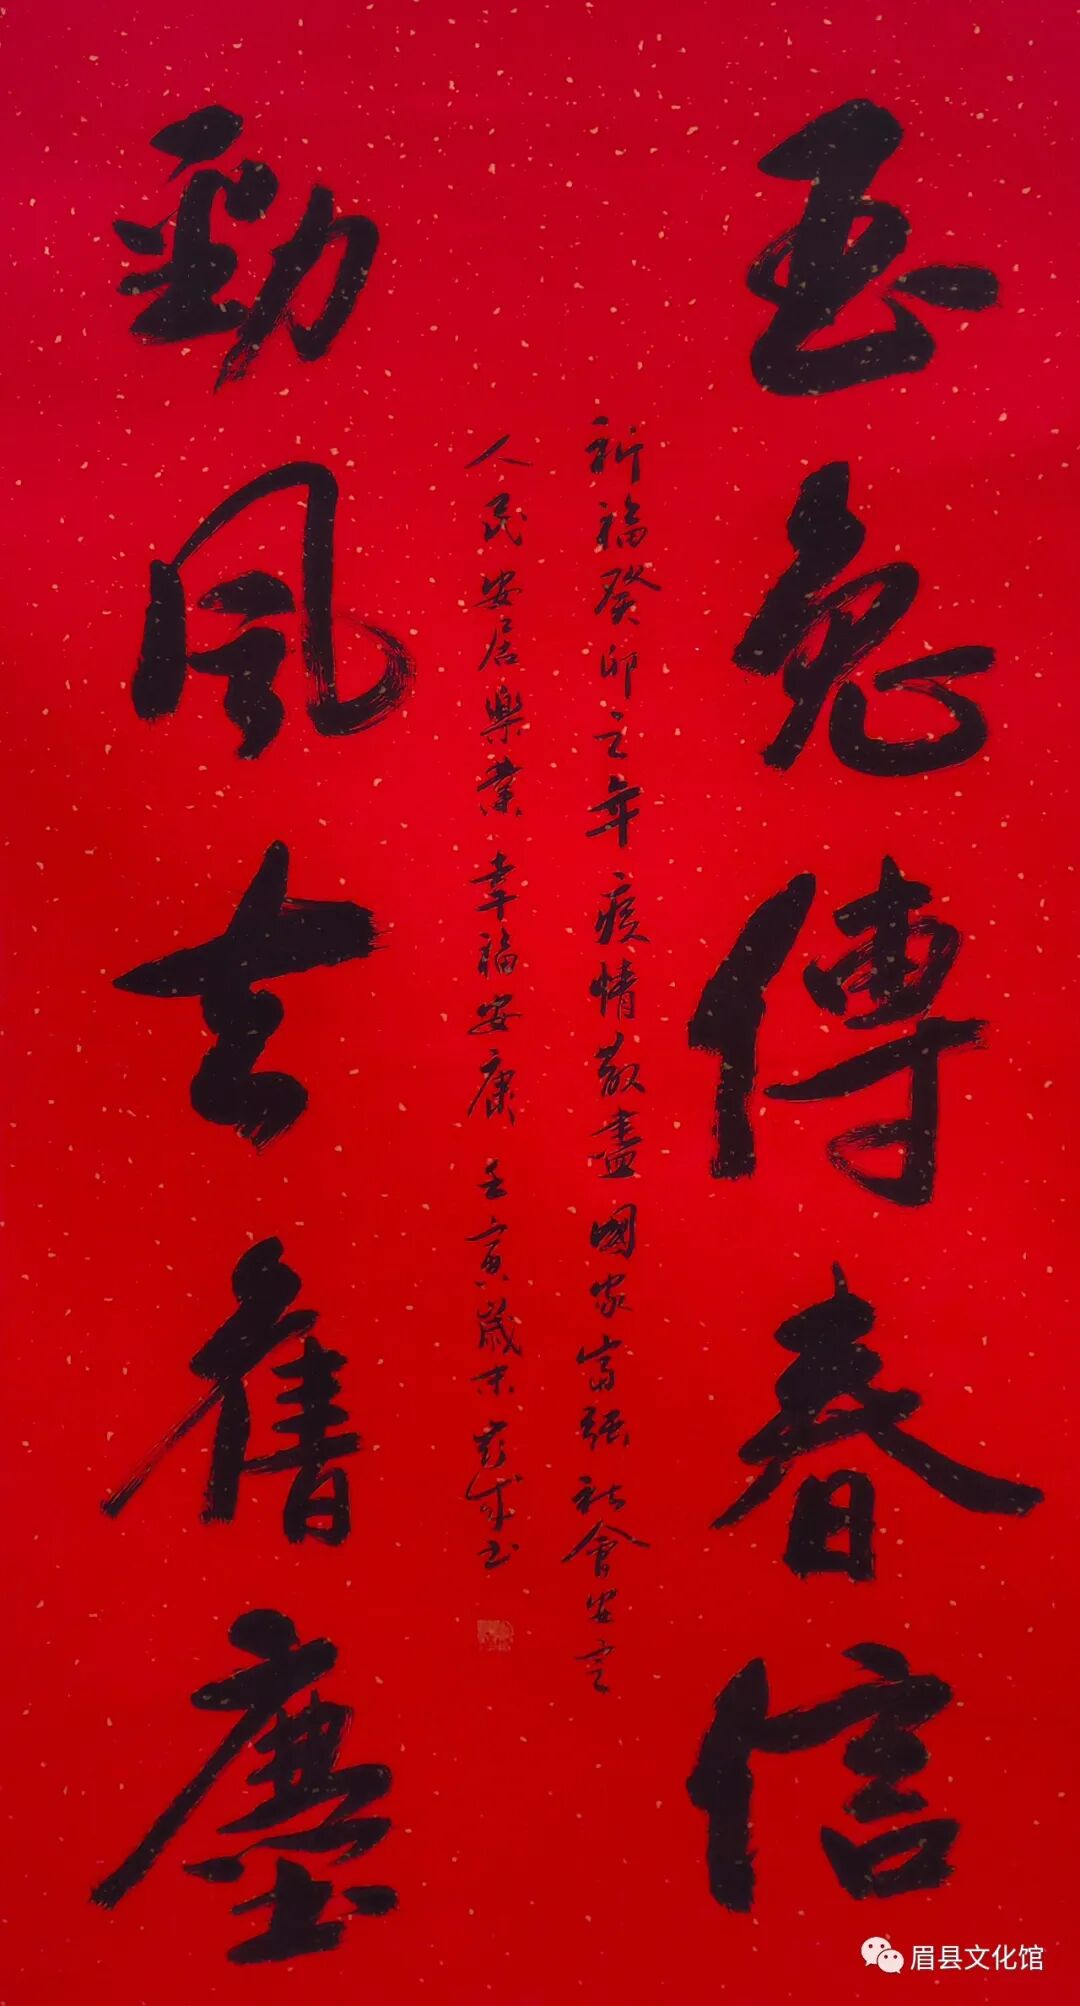 玉兔傳春信
祈福癸卯之年疫情散盡國家富强社會安定
人民安居樂業幸福安康 壬寅歲末
勁風去舊塵
眉县文化馆